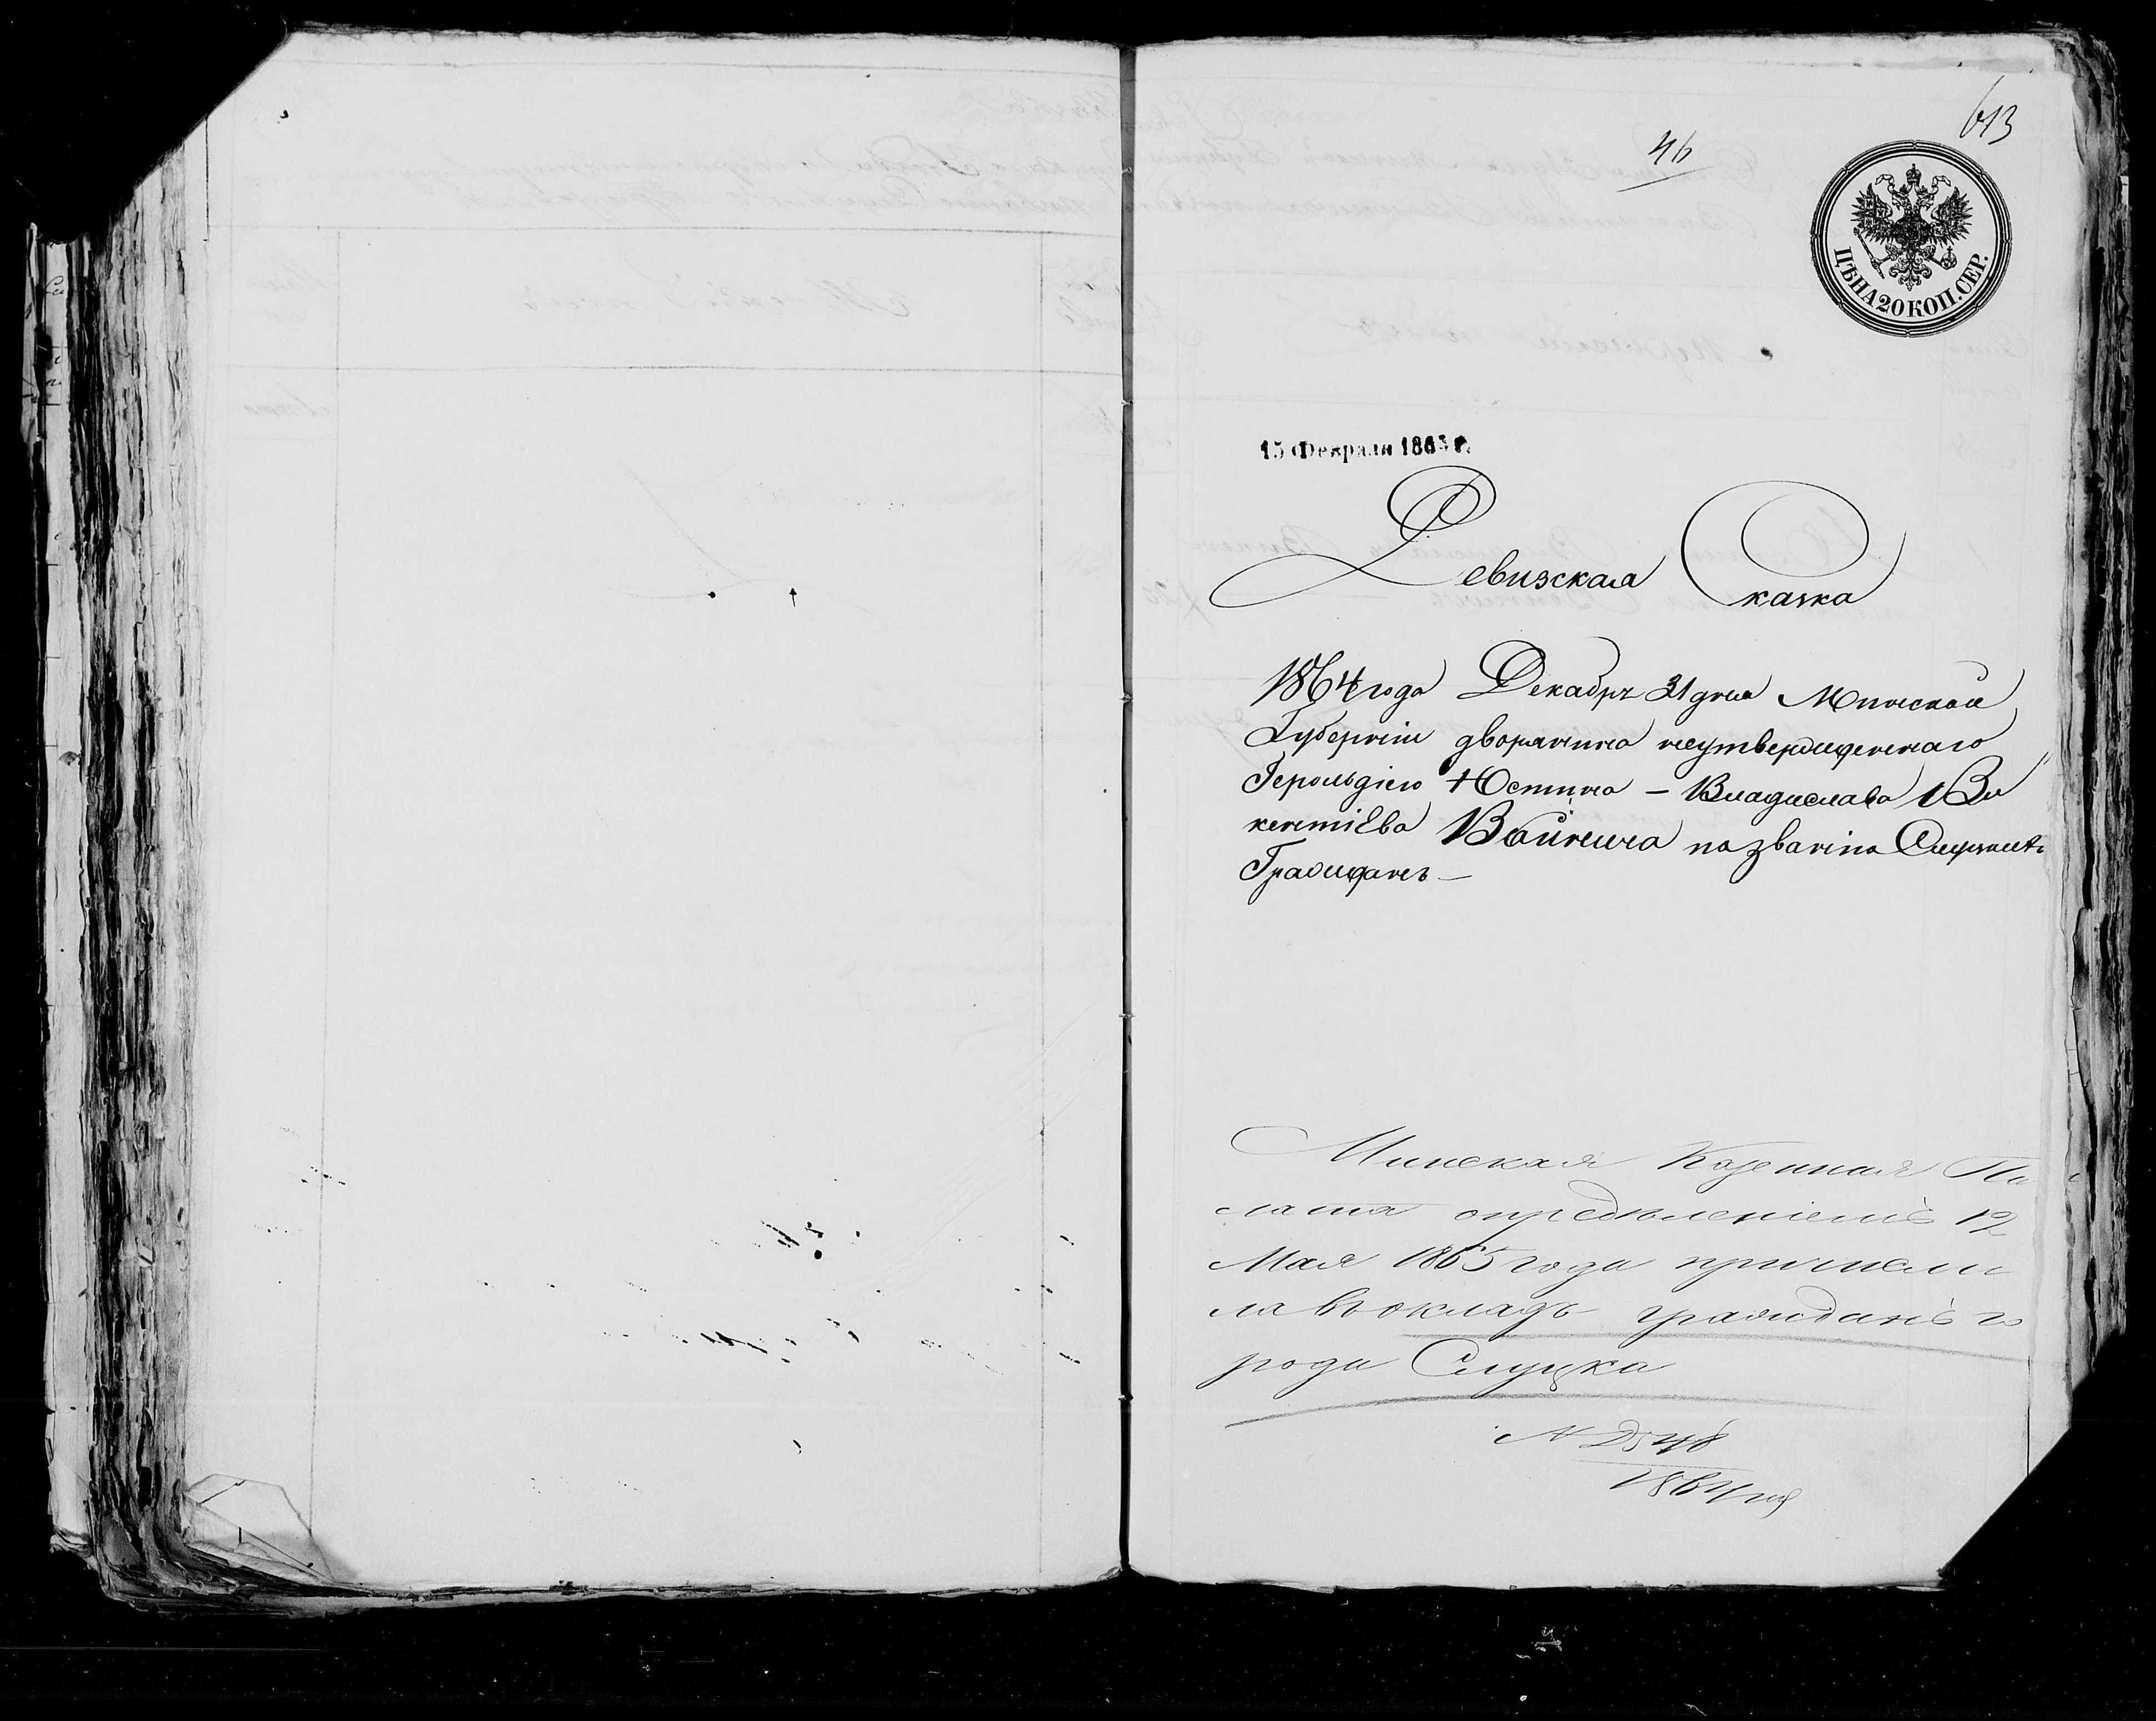 613
46
ЦѢНА 20 КОП. СЕР.
15 Февраля 1865 г.
Ревизская Скаска
1864 года Декабря 31 дня Минской
Губерніи дворянина неутвержденнаго
Герольдіею Юстина - Владислава Ви
кентіева Войнича по званію Слуцкихъ
Гражданъ -
Минская Казенная Па
лата опредѣленіемъ 12
Мая 1865 года причисли
ла въ окладъ гражданъ го
рода Слуцка
N 2548
1864